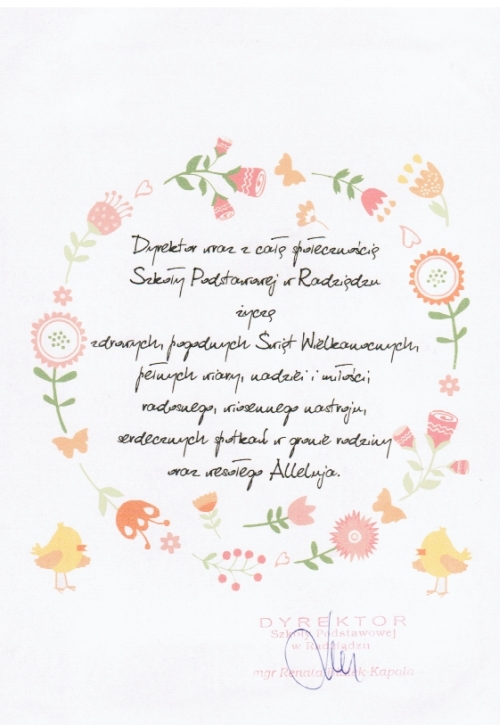 Dyrektor wraz z całą społecznością
Szkoły Podstawowej w Radziądzu
życzą
zdrowych, pogodnych Świąt Wielkanocnych,
pełnych wiary, nadziei i miłości,
radosnego, wiosennego nastroju,
serdecznych spotkań w gronie rodziny
oraz wesołego Alleluja.
DYREKTOR
Szkoły Podstawowej
w Radziądzu
mgr Renata -Kapola